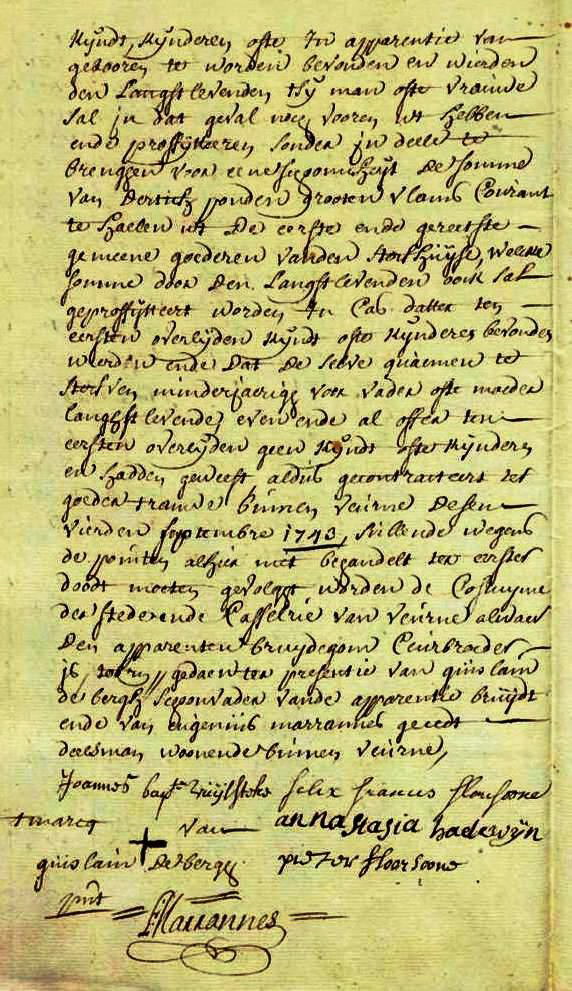 Kyndt, Kynderen ofte In apparentie van
gebooren te worden bevonden en wierden
den Langhstlevenden tsy man ofte vrauwe
sal in dat geval noch vooren ut hebben
ende proffytteren sonder in deele te
brenghen voor eene schoonicheyt de somme
van dertich ponden grooten vlams Courant
te haelen ut de eerste ende gereetste
gemeene goederen vanden sterfhuyse, welcke
somme door den Langhstlevenden oock sal
geproffytteert worden In Cas datter ten
eersten overlyden Kyndt ofte Kynderen bevonden
wierden ende dat de selve quaemen te
sterfven minderjaerigh voor vader ofte moeder
langhst levende, even ende al offer ten
eersten overlyden geen Kyndt ofte Kynderen
en hadden geweest aldus gecontracteert ter
goeder trauwe binnen veurne desen
vierden septembre 1743, sullende wegens
de pointen alhier niet behandelt ter eerster
doodt moeten gevolght worden de Costuyme
der stede ende Casselrie van veurne alwaer
den apparenten bruydegom Ceurbroeder
is, toorn, gedaen ter presentie van guislain
de bergh schoonvader vande apparente bruydt
ende van Eugenius marrannes geeedt
deelsman woonende binnen veurne,
Joannes bapte Vuylsteke felix francus floorsoone
tmarcq van annastasia hadewyn
guislain debergh pieter floorsoone
pnt
E Marrannes